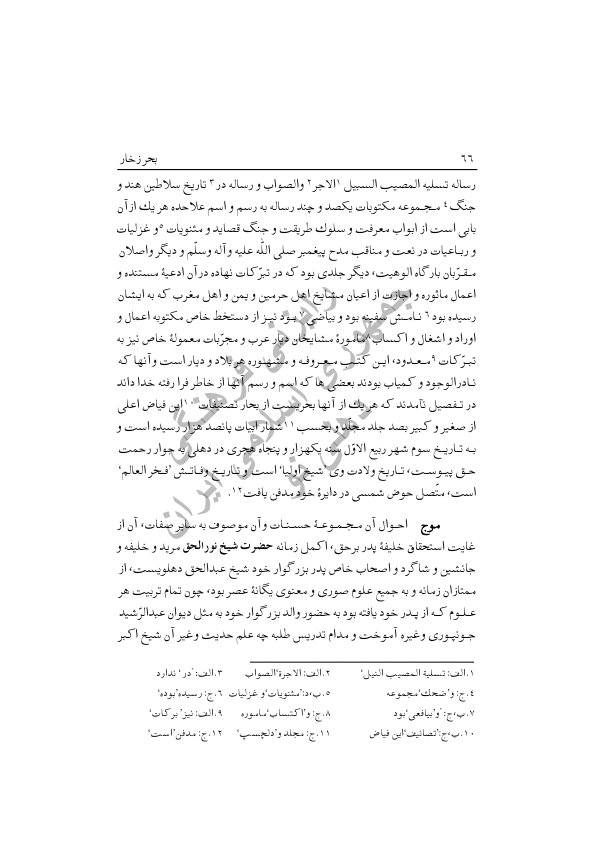 ۶۶ بحر زخار
رساله تسلیه المصیب السبیل ۱الاجر۲ والصواب و رساله در۳ تاریخ سلاطین هند و
جنگ۴ مجموعه مکتوبات یکصد و چند رساله به رسم و اسم علاحده هر یك از آن
بابی است از ابواب معرفت و سلوك طریقت و جنگ قصاید و مثنویات ۵و غزلیات
و رباعیات در نعت و مناقب مدح پیغمبر صلی اللّٰه علیه و آله وسلّم و دیگر واصلان
مقرّبان بارگاه الوهیت، دیگر جلدی بود که در تبرّکات نهاده درآن ادعیۀ مستنده و
اعمال ماثوره و اجازت از اعیان مشایخ اهل حرمین و یمن و اهل مغرب که به ایشان
رسیده بود ۶ نامش سفینه بود و بیاضی۷ بود نیز از دستخط خاص مکتوبه اعمال و
اوراد و اشغال و اکساب۸ مامورۀ مشایخان دیار عرب و مجرّبات معمولۀ خاص نیز به
تبرّکات ۹معدود، این کتب معروفه و مشهوره هر بلاد و دیار است و آنها که
نادرالوجود و کمیاب بودند بعضی ها که اسم و رسم آنها از خاطر فرا رفته خدا داند
در تفصیل نآمدند که هر یك از آنها بحریست از بحار تصنیفات ۱۰این فیاض اعلی
از صغیر و کبیر بصد جلد مجلد و بحسب ۱۱شمار ابیات پانصد هزار رسیده است و
به تاریخ سوم شهر ربیع الاوّل سنه یکهزار و پنجاه هجری در دهلی به جوار رحمت
حق پیوست، تاریخ ولادت وی ’شیخ اولیا‘ است و تاریخ وفاتش ’فخر العالم‘
است، متّصل حوض شمسی در دایرۀ خود مدفن یافت۱۲.
موج احوال آن مجموعۀ حسنات و آن موصوف به سایر صفات، آن از
غایت استحقاق خلیفۀ پدر برحق، اکمل زمانه حضرت شیخ نورالحق مرید و خلیفه و
جانشین و شاگرد و اصحاب خاص پدر بزرگوار خود شیخ عبدالحق دهلویست، از
ممتازان زمانه و به جمیع علوم صوری و معنوی یگانۀ عصر بود، چون تمام تربیت هر
علوم که از پدر خود یافته بود به حضور والد بزرگوار خود به مثل دیوان عبدالرّشید
جونپوری وغیره آموخت و مدام تدریس طلبه چه علم حدیث وغیر آن شیخ اکبر
۱.الف: تسلیة المصیب النیل‘ ۲.الف: الاجرة‘الصواب ۳.الف: ’در‘ ندارد
۴.ج: و’ضحك‘مجموعه ۵.ب،د:’مثنویات‘و غزلیات ۶.ج: رسیده’بوده‘
۷.ب،ج: و’بیافعی‘بود ۸.ج: و’اکتساب‘ماموره ۹.الف: نیز’برکات‘
۱۰.ب،ج:’تصانیف‘این فیاض ۱۱.ج: مجلد و’دلچسپ‘ ۱۲.ج: مدفن’است‘
رایزنی فرهنگی
جمهوری اسلامی ایران
دهلی نو